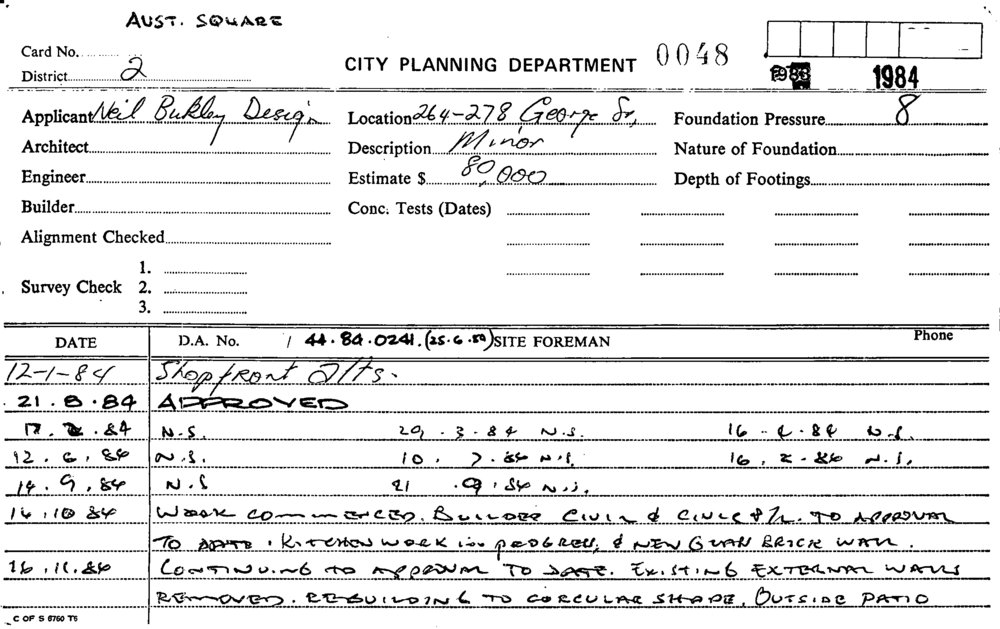 AUST. SQUARE
Card No.
District 2
CITY PLANNING DEPARTMENT 0048
1983 1984
Applicant Neil Bukley Design Location 264-278 George St, Foundation Pressure 8
Architect Description Minor Nature of Foundation
Engineer Estimate $ 80,000 Depth of Footings
Builder Conc. Tests (Dates)
Alignment Checked
1.
Survey Check 2.
3.
DATE D.A. No. / 44.84.0241. SITE FOREMAN Phone
12-1-84 Shopfront Alts.
21.8.84 APPROVED
.84 N.S. 29.3.84 N.S. 16.4.84 N.S.
12.6.84 N.S. 10.7.84 N.S. 16. .84 N.S.
14.9.84 N.S 21 .9.84 N.S.
16.10 84 WORK COMMENCED. BUILDER CIVIL & CIVIC P/L. TO APPROVAL
TO DATE. KITCHEN WORK in PROGRESS, & NEW BRICK WALL.
16.11.84 CONTINUING TO APPROVAL TO DATE. EXISTING EXTERNAL WALLS
REMOVED. REBUILDING TO CIRCULAR SHAPE, OUTSIDE PATIO
C OF S 6760 T6